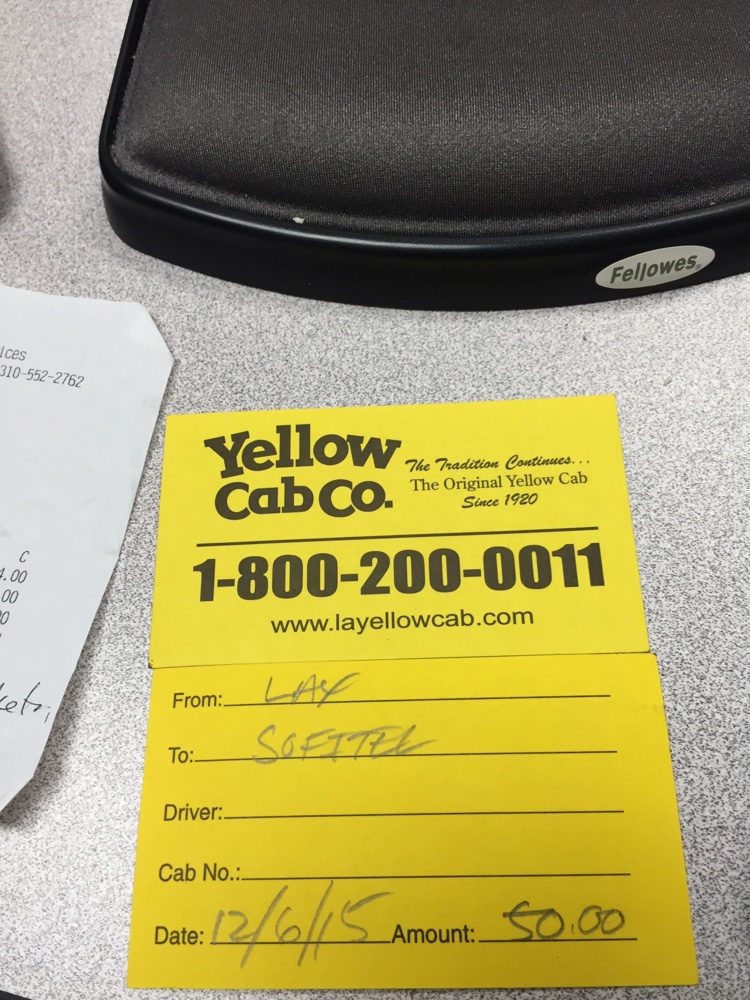 Fellowes
ices
310-552-2762
C
.00
.00
Yellow
Cab Co.
The Tradition Continues...
The Original Yellow Cab
Since 1920
1-800-200-0011
www.layellowcab.com
From: LAX
To: SOFITEL
Driver:
Cab No.:
Date: 12/6/15 Amount: 50.00